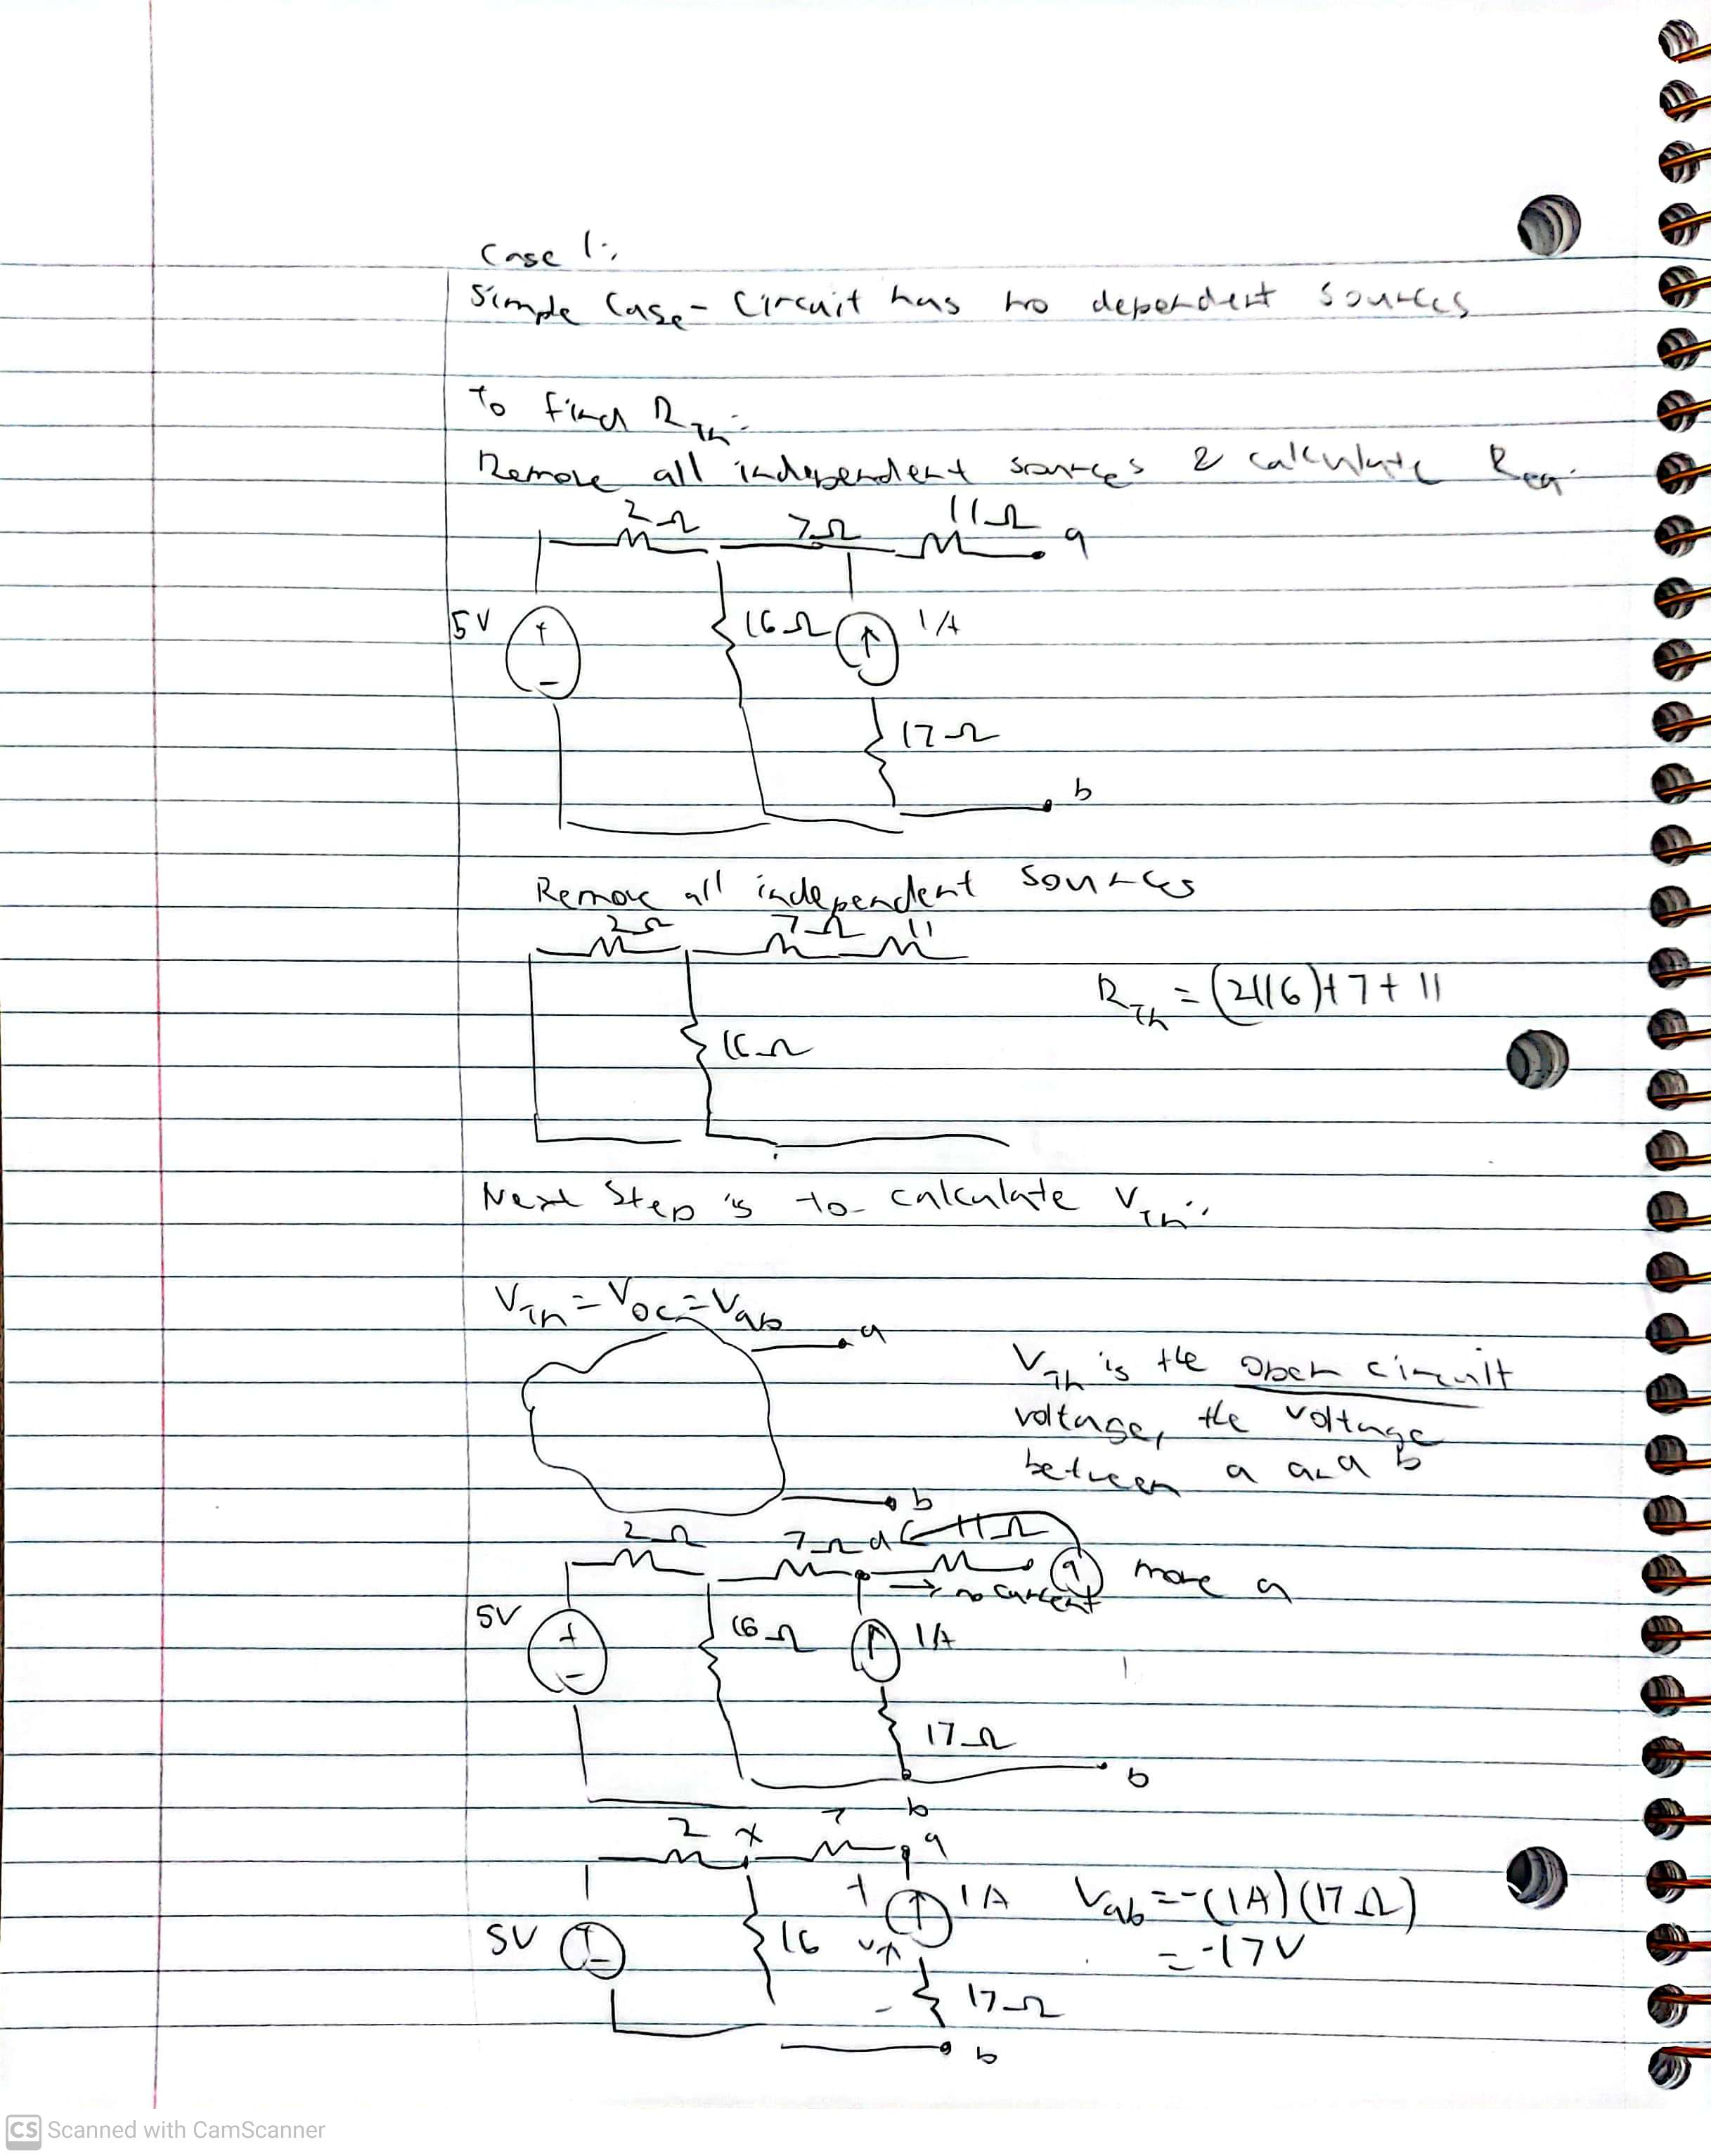 Case 1:
Simple Case - Circuit has no dependent sources
To find R_Th:
Remove all independent sources & calculate Req.
2Ω 7Ω 11Ω a
5V + - 16Ω ↑ 1A
17Ω
b
Remove all independent sources
2Ω 7Ω 11
R_Th = (2||16)+7+11
16Ω
Next Step is to calculate V_Th:
V_Th = V_oc = V_ab
a
V_Th is the open circuit
voltage, the voltage
between a and b
b
2Ω 7Ω a 11Ω a move a
→ no current
5V + - 16Ω ↑ 1A
17Ω
b
b
2 x 7 a
5V + - 16 + ↑ 1A V_ab = -(1A)(17Ω)
= -17V
- 17Ω
b
CS Scanned with CamScanner